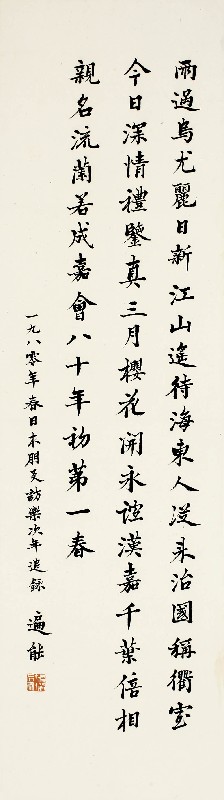 雨過烏尤麗日新江山遙待海東人從來治國稱衛室
今日深情禮鑒真三月櫻花開永誼漢嘉千葉倍相
親名流蘭若成嘉會八十年初第一春
一九八零年春日本朋友訪樂次年追錄 遍能